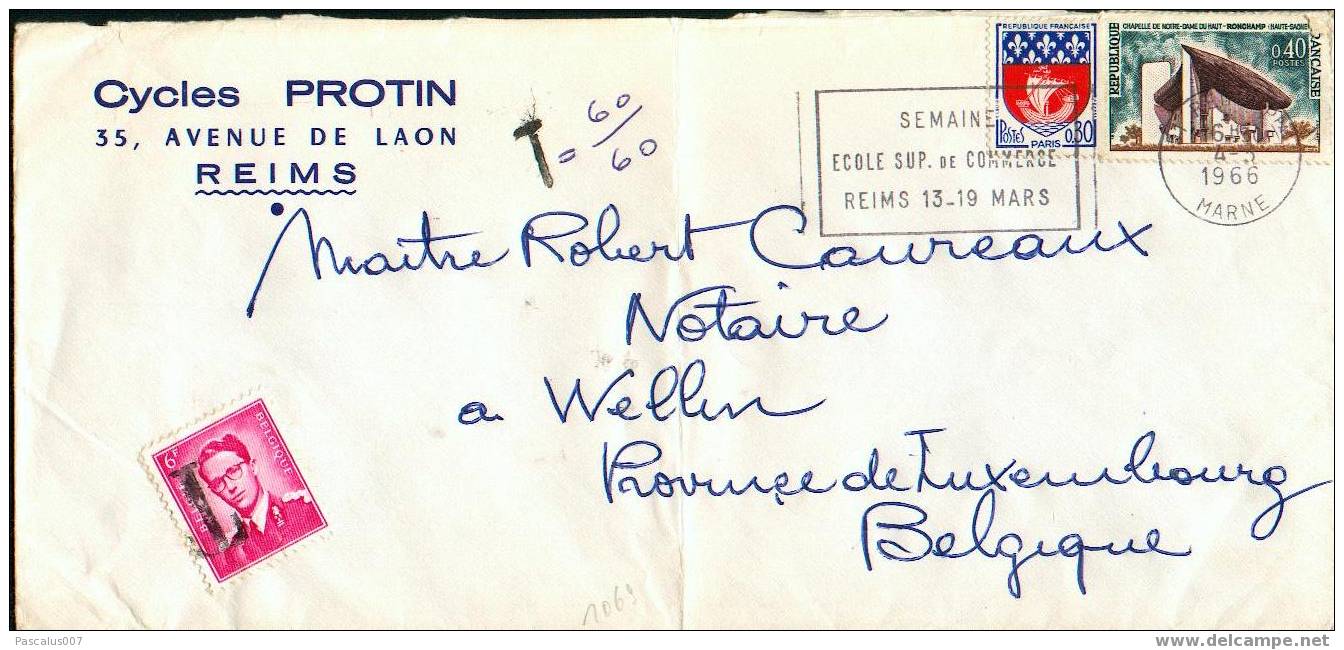 Cycles PROTIN
35, AVENUE DE LAON
REIMS
T = 60/60
REPUBLIQUE FRANÇAISE
POSTES 0.30
PARIS
CHAPELLE DE NOTRE-DAME DU HAUT - RONCHAMP (HAUTE-SAÔNE)
REPUBLIQUE
FRANÇAISE
0,40
POSTES
SEMAINE
ECOLE SUP. DE COMMERCE
REIMS 13-19 MARS
1966
MARNE
Maitre Robert Caureaux
Notaire
a Wellin
Province de Luxembourg
Belgique
6F BELGIQUE
T
1069
Pascalus007
www.delcampe.net